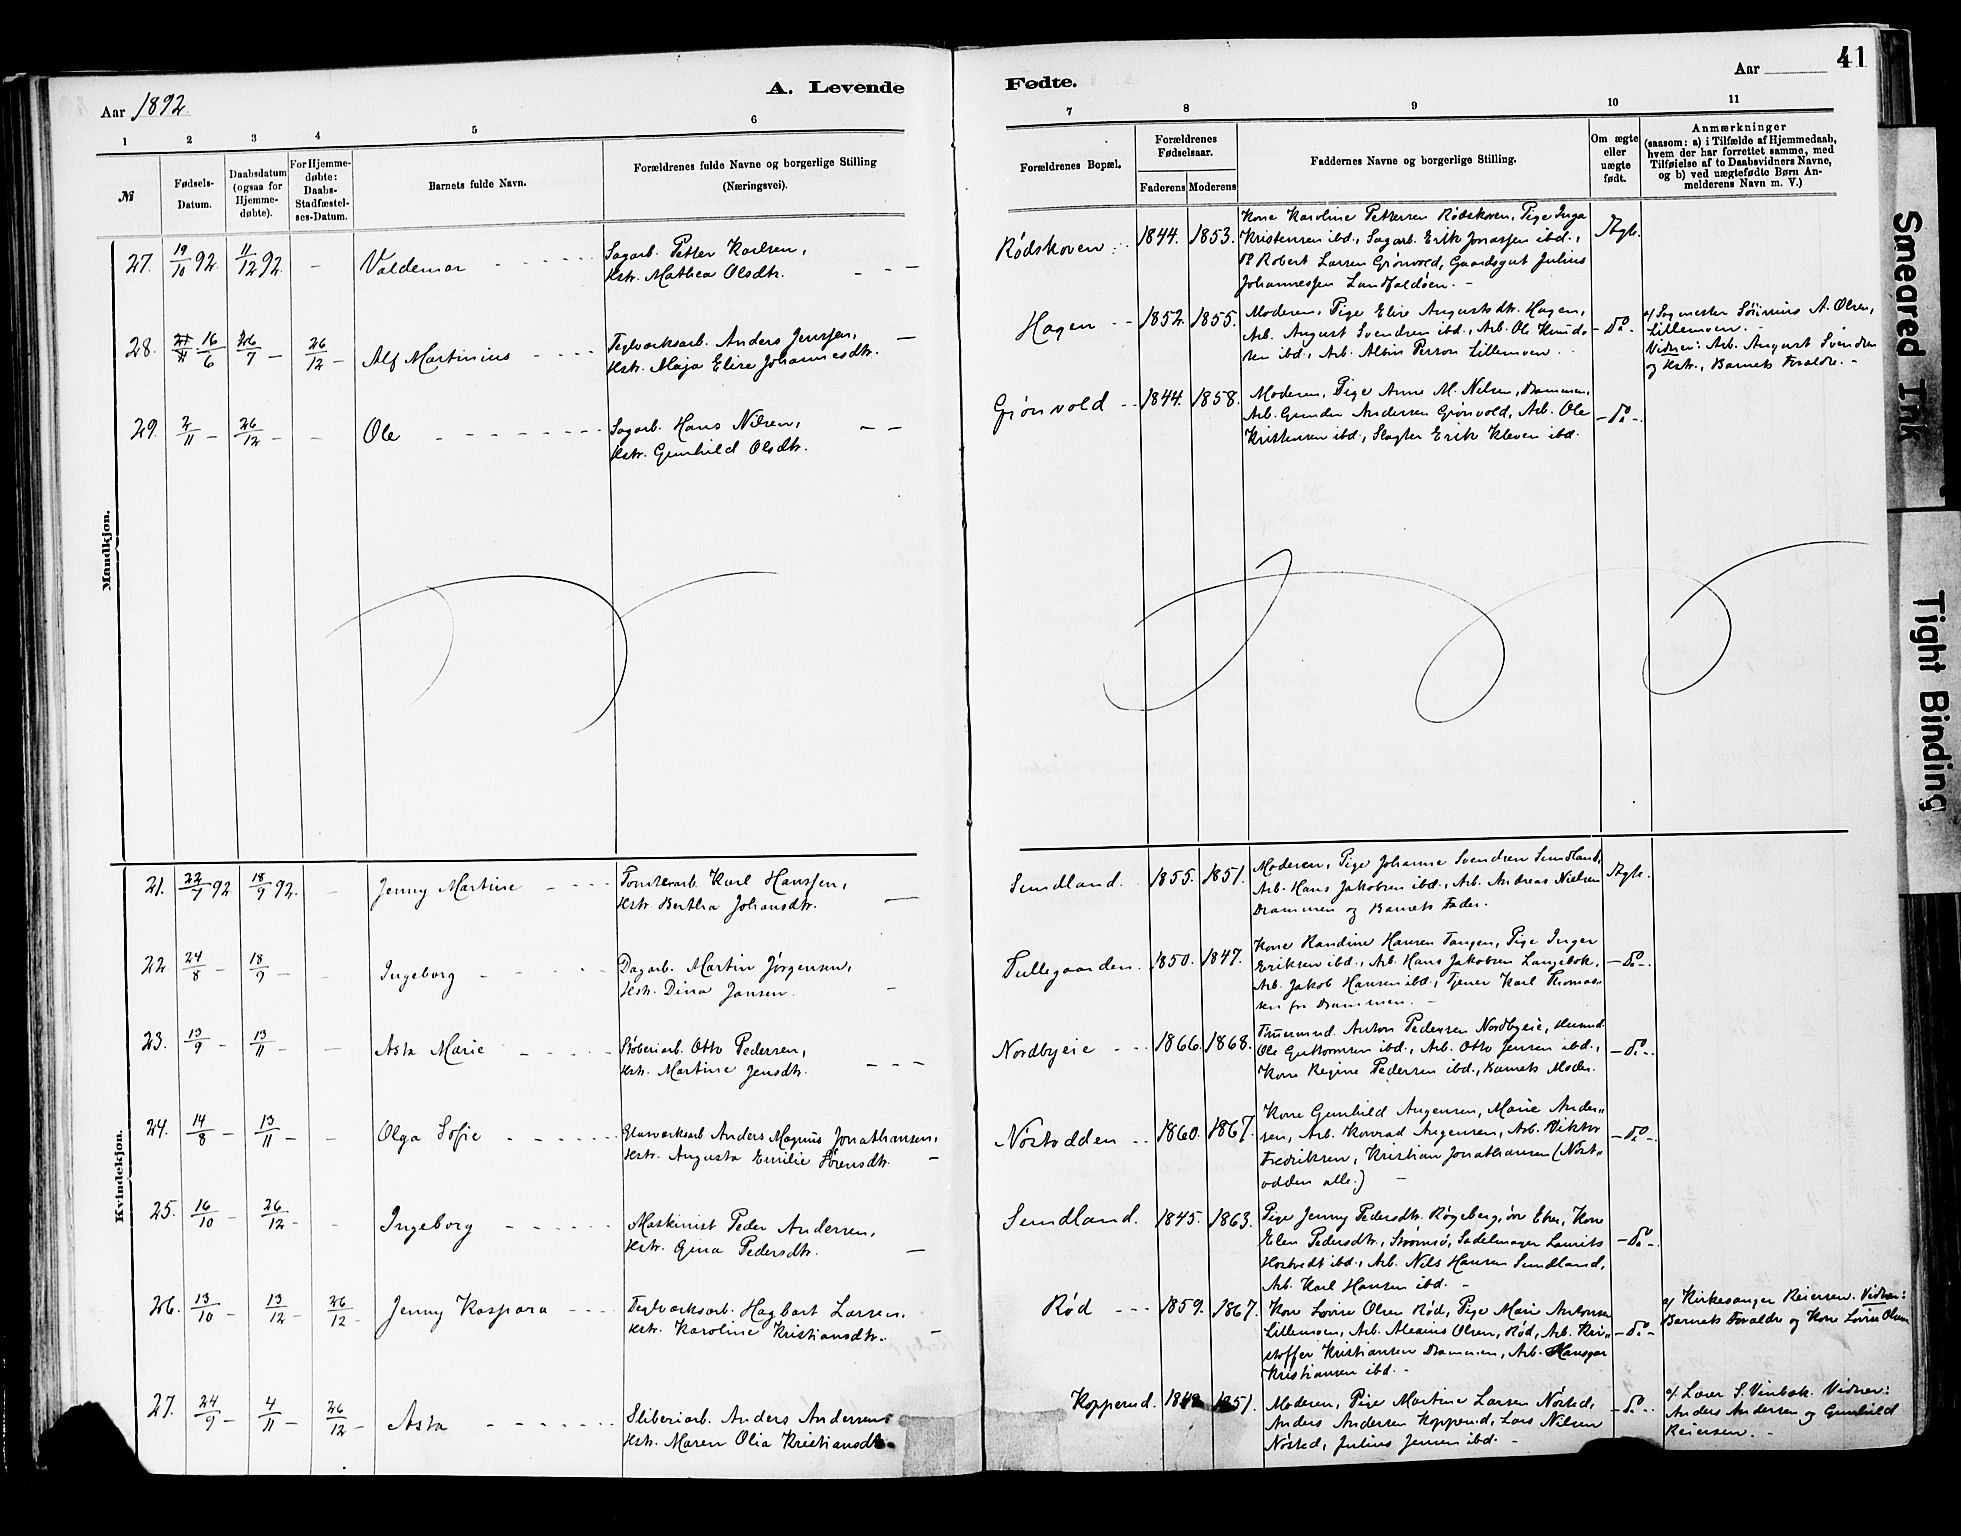 A. Levende
Fødte.
Aar
41
Aar 1892.
1 2 3 4 5 6 7 8 9 10 11
№
Fødsels-
Datum.
Daabsdatum
(ogsaa for
Hjemme-
døbte).
For Hjemme-
døbte:
Daabs-
Stadfæstel-
ses-Datum.
Barnets fulde Navn.
Forældrenes fulde Navne og borgerlige Stilling
(Næringsvei).
Forældrenes Bopæl.
Forældrenes
Fødselsaar.
Faderens Moderens
Faddernes Navne og borgerlige Stilling.
Om ægte
eller
uægte
født.
Anmærkninger
(saasom: a) i Tilfælde af Hjemmedaab,
hvem der har forrettet samme, med
Tilføielse af to Daabsvidners Navne,
og b) ved uægtefødte Børn An-
melderens Navn m. V.)
Mandkjøn.
27. 19/10 92. 11/12 92. - Valdemar
Sagarb. Petter Karlsen,
Hstr. Mathea Olsdtr.
Rødskoven. 1844. 1853.
Kone Karoline Pettersen Rødskoven, Pige Inga
Kristensen ibd., Sagarb. Erik Jonassen ibd.,
Robert Larsen Grønvold, Gaardsgut Julius
Johannessen Landfaldøen. -
Ægte.
28. 16/6 26/7 - 26/12 - Alf Martinius
Teglværksarb. Anders Jenssen,
Hstr. Maja Elise Johannesdtr. -
Hagen 1852. 1855.
Moderen, Pige Elise Augustsdtr. Hagen,
Arb. August Svendsen ibd., Arb. Ole Knud-
sen ibd., Arb. Albin Person Lillemoen.
- do -
a/ Sagmester A. Olsen,
Lillemoen. -
Vidner: Arb. August Svendsen
og Hstr., Barnets Forældre. -
29. 2/11 - 26/12 - - Ole
Sagarb. Hans Nilsen,
Hstr. Gunhild Olsdtr.
Grønvold 1844. 1858.
Moderen, Pige Anne M. Nilsen, Drammen,
Arb. Gunder Andersen Grønvold, Arb. Ole
Kristensen ibd., Slagter Erik Kleven ibd.
- do -
Kvindekjøn.
21. 22/7 92 18/9 92. - Jenny Martine
Tomtearb. Karl Hanssen,
Hstr. Bertha Johansdtr.
Sundland. 1855. 1851.
Moderen, Pige Johanne Svendsen Sundland,
Arb. Hans Jakobsen ibd., Arb. Andreas Nielsen
Drammen og Barnets Fader.
Ægte.
22 24/8 - 18/9 - - Ingeborg
Dagarb. Martin Jørgensen,
Hstr. Dina Jansen.
Tullegaarden. 1850. 1847.
Kone Randine Hansen Tangen, Pige Inger
Eriksen ibd., Arb. Hans Jakobsen Langebok,
Arb. Jakob Hansen ibd., Tjener Karl Thomas-
sen fra Drammen. -
- do -
23. 13/9 - 13/11 - - Asta Marie
Støberiarb. Otto Pedersen,
Hstr. Martine Jensdtr.
Nordbyeie 1866. 1868.
Anton Pedersen Nordbyeie, Husmd.
Ole Guttormsen ibd., Arb. Otto Jensen ibd.,
Kone Regine Pedersen ibd., Barnets Moder.
- do -
24. 14/8 - 13/11 - - Olga Sofie
Glasværksarb Anders Magnus Jonathansen,
Hstr. Augusta Emilie Sørensdtr. -
Nøstodden 1860. 1867.
Kone Gunhild Augensen, Marie Ander-
sen, Arb. Konrad Augensen, Arb. Viktor
Fredriksen, Kristian Jonathansen (Nøst-
odden alle.) -
- do -
25. 16/10 - 26/12 - - Ingeborg
Maskinist Peder Andersen,
Hstr. Gina Pedersdtr. -
Sundland. 1845. 1863.
Pige Jenny Pedersdtr. Røgeberg, øvre Eker, Kone
Elen Pedersdtr., Strømsø, Sadelmager Laurits
Hostvedt ibd., Arb. Nils Hansen Sundland,
Arb. Karl Hansen ibd. -
- do -
26. 13/10 - 13/12 - 26/12 - Jenny Kaspara
Teglværksarb. Hagbart Larsen,
Hstr. Karoline Kristiansdtr. -
Rød 1859. 1867.
Kone Lovise Olsen Rød, Pige Marie Antonsen
Lillemoen, Arb. Olsen, Rød, Arb. Kri-
stoffer Kristiansen Drammen, Arb.
Kristiansen ibd. -
- do -
a/ Kirkesanger Reiersen. Vidner:
Barnets Forældre og Kone Lovise Olsen
27. 24/9 - 4/11 - 26/12 - Asta
Sliberiarb. Anders Andersen,
Hstr. Maren Olia Kristiansdtr.
Kopperud. 1851.
Moderen, Pige Martine Larsen Nøsted,
Anders Andersen Kopperud, Lars Nilsen
Nøsted, Julius Jensen ibd. -
- do -
a/. Lærer S. Vinbok. Vidner:
Anders Andersen og Gunhild
Reiersen. -
Smeared Ink
Tight Binding